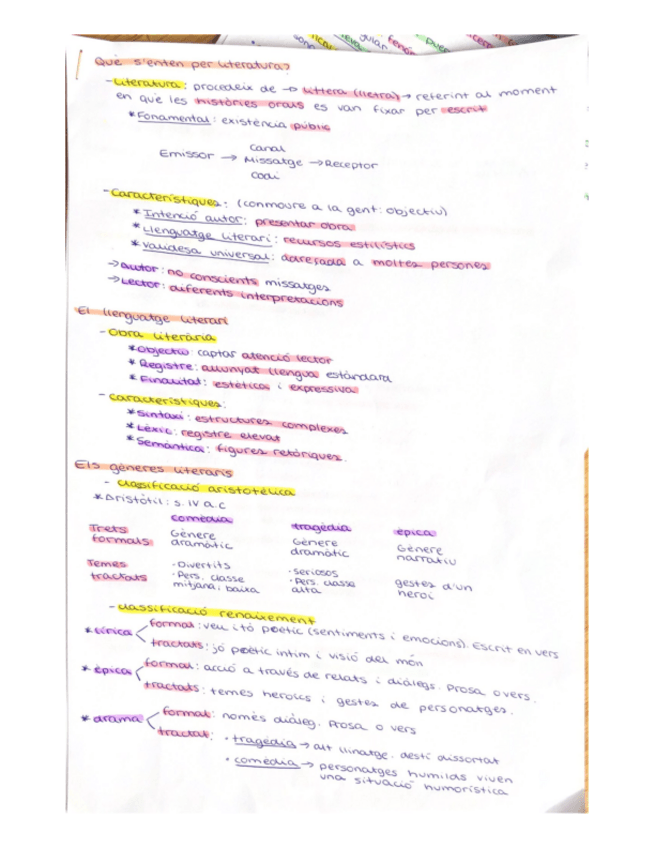 Què s'entén per literatura?
- Literatura: procedeix de → littera (lletra) → referint al moment
en què les històries orals es van fixar per escrit
* Fonamental: existència públic
Canal
Emissor → Missatge → Receptor
Codi
- Característiques: (conmoure a la gent: objectiu)
* Intenció autor: presentar obra
* Llenguatge literari: recursos estilístics
* Validesa universal: dareçada a moltes persones
→ autor: no conscients missatges
→ Lector: diferents interpretacions
El llenguatge literari
- Obra literària
* Objectiu: captar atenció lector
* Registre: allunyat llengua estàndara
* Finalitat: estètica i expressiva
- Característiques:
* Sintaxi: estructures complexes
* Lèxic: registre elevat
* Semàntica: figures retòriques.
Els gèneres literaris
- Classificació aristotèlica
* Aristòtil: s. IV a.c
comèdia tragèdia èpica
Trets formals Gènere dramàtic Gènere dramàtic Gènere narratiu
Temes tractats · Divertits · Pers. classe mitjana, baixa · seriosos · Pers. classe alta gestes d'un heroi
- Classificació renaixement
* Lírica formal: veu i tò poètic (sentiments i emocions). Escrit en vers
tractats: jo poètic íntim i visió del món
* èpica formal: acció a través de relats i diàlegs. Prosa o vers.
tractats: temes heroics i gestes de personatges.
* drama formal: només diàleg. Prosa o vers
tractat: · tragèdia → alt llinatge. destí dissortat
· comèdia → personatges humilds viven
una situació humorística